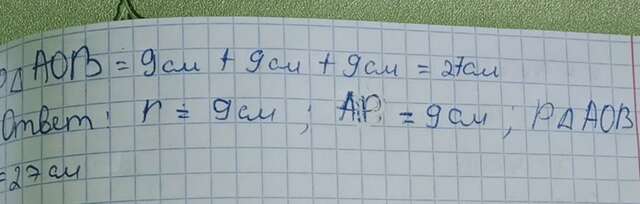 P△ AOB = 9 см + 9 см + 9 см = 27 см
Ответ: r = 9 см ; = 9 см ; P△AOB
= 27 см